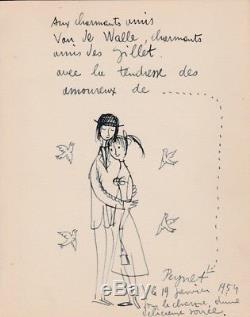 Aux charmants amis
Van de Walle, charmants
amis des Gillet.
avec la tendresse des
amoureux de
Peynet
le 19 janvier 1954
sous le charme d'une
délicieuse soirée